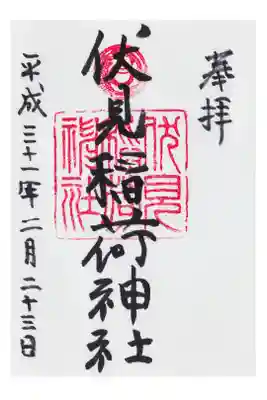 奉拝
伏見稲荷神社
伏見稲荷神社
平成三十一年二月二十三日